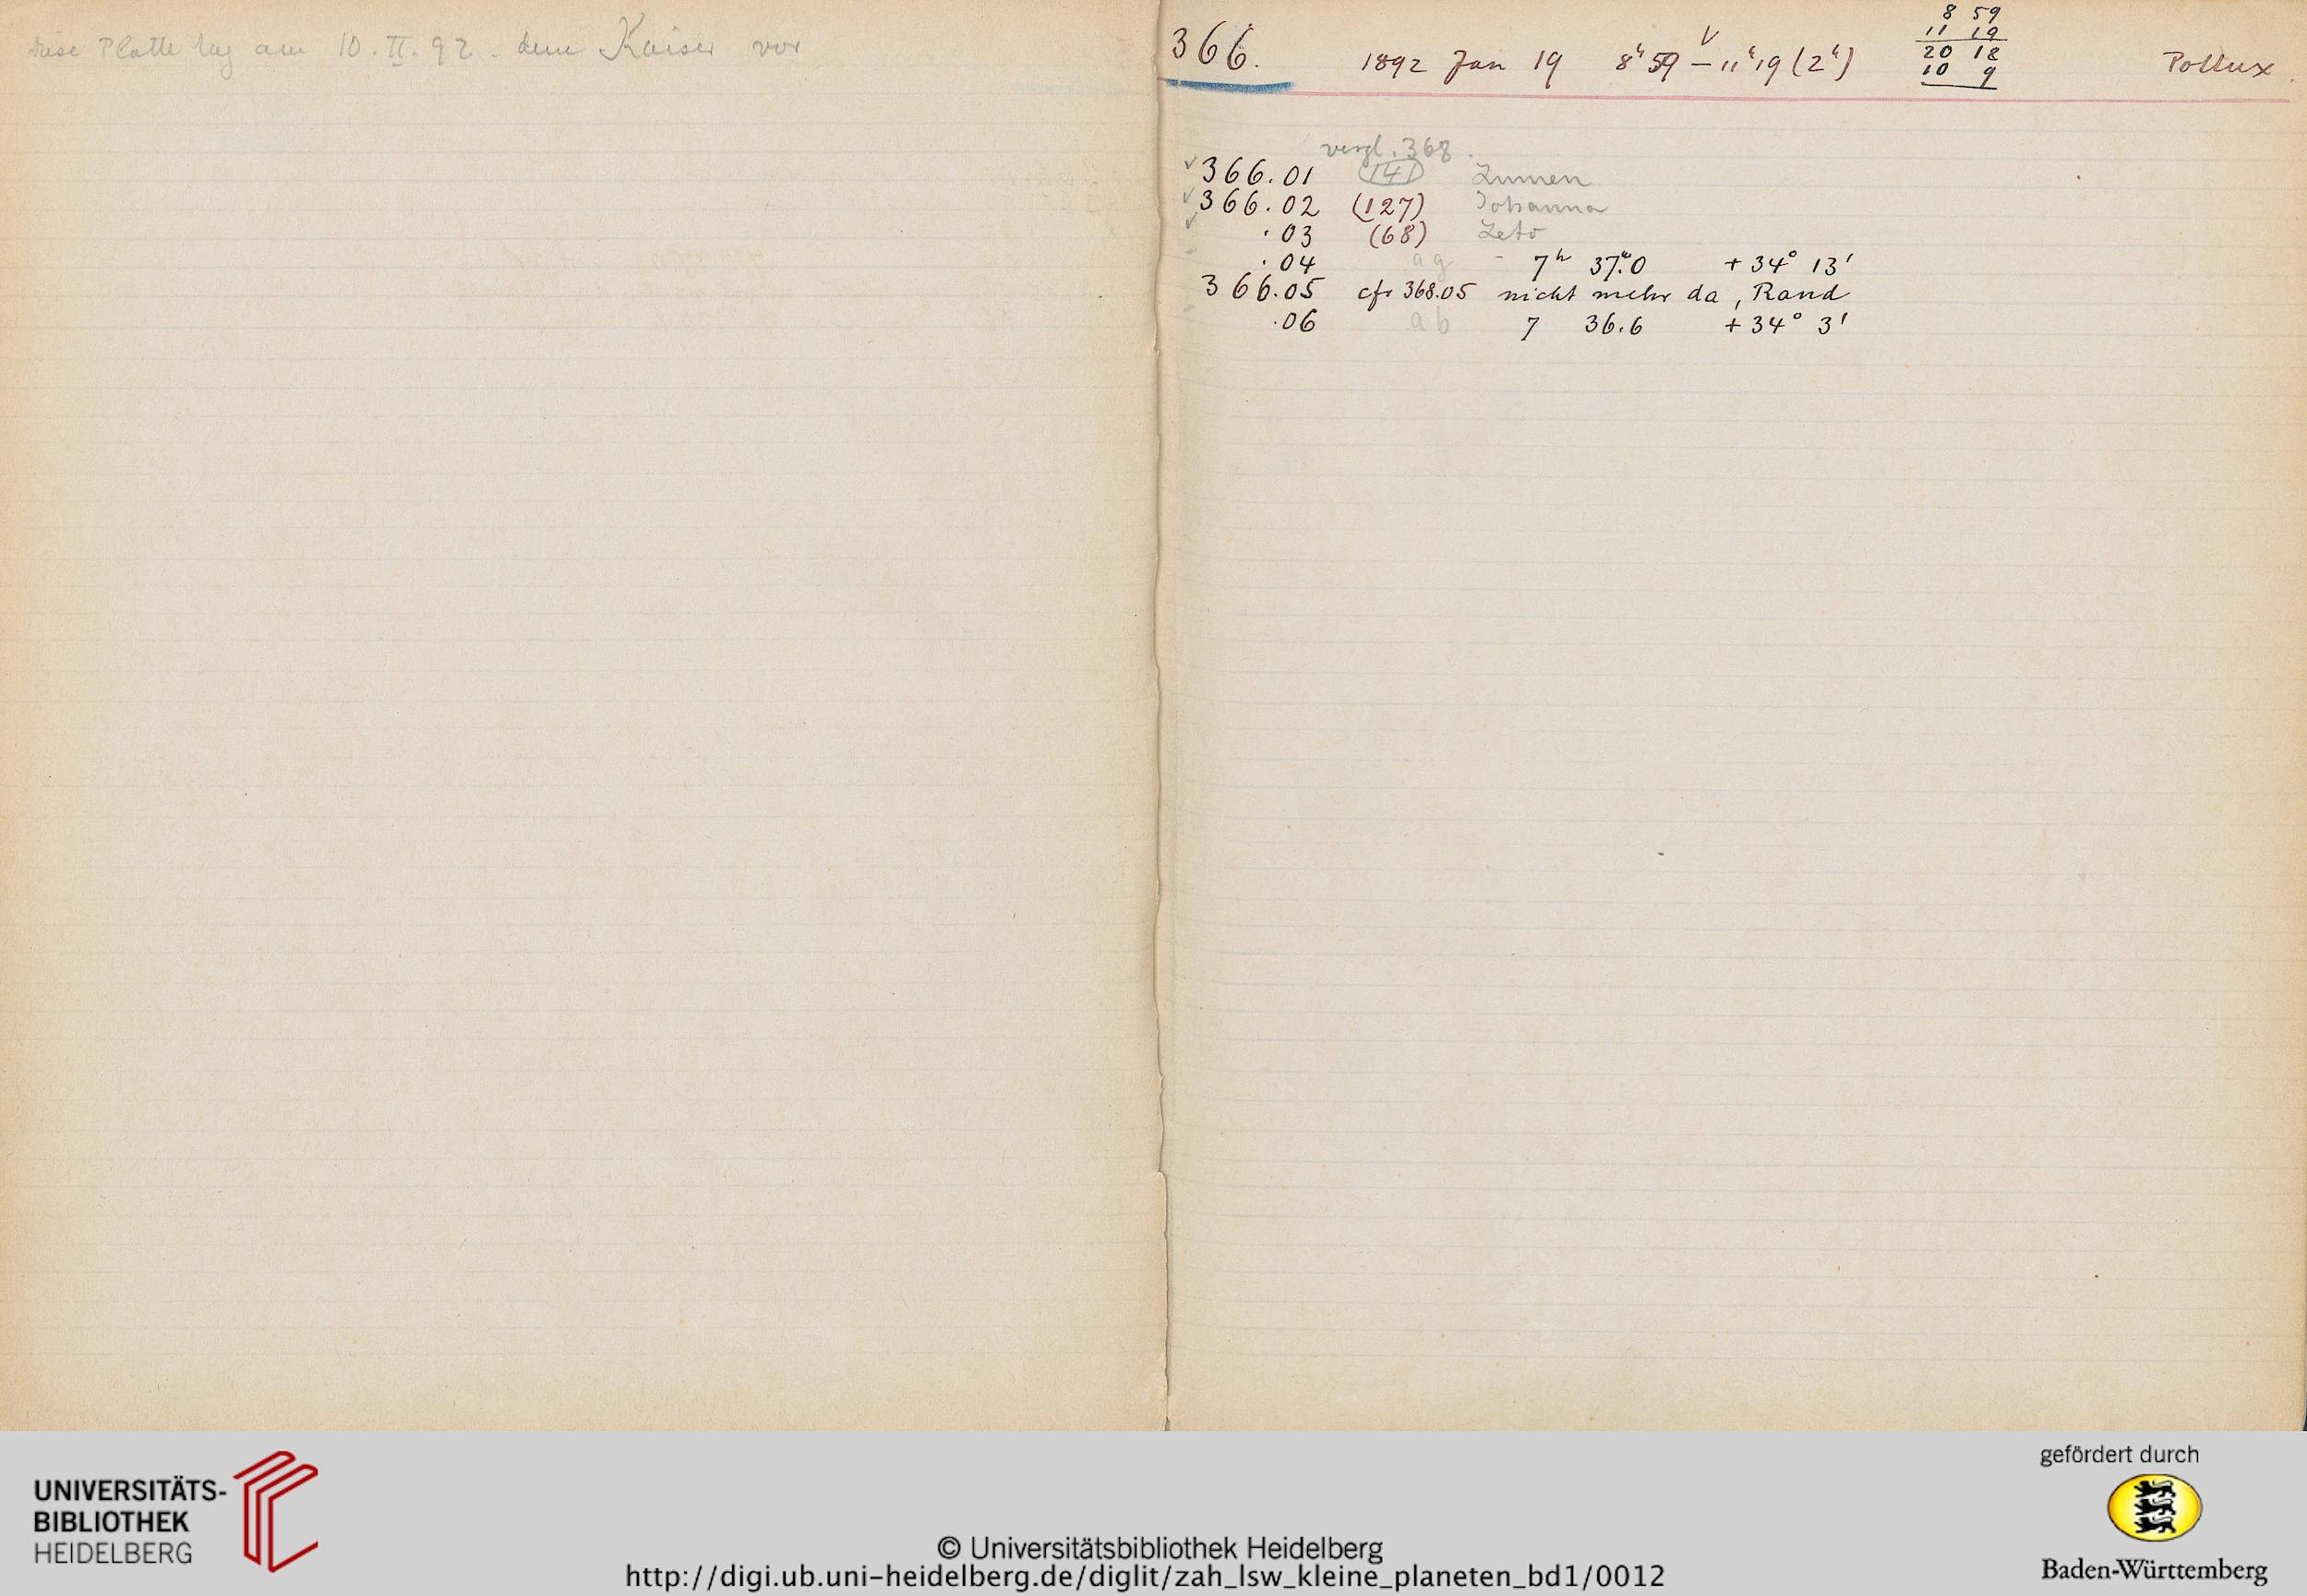 diese Platte lag am 10. II. 92. dem Kaiser vor
366. 1892 Jan 19 8ʰ59 – 11ʰ19 (2ʰ) Pollux.
8 59
11 19
20 18
10 9
vergl. 368.
366.01 (141) Lumen
366.02 (127) Johanna
.03 (68) Leto
.04 ag - 7ʰ 37.ᵐ0 + 34° 13'
366.05 cfr 368.05 nicht mehr da, Rand
.06 ab 7 36.6 + 34° 3'
UNIVERSITÄTS-
BIBLIOTHEK
HEIDELBERG
© Universitätsbibliothek Heidelberg
http://digi.ub.uni-heidelberg.de/diglit/zah_lsw_kleine_planeten_bd1/0012
gefördert durch
Baden-Württemberg